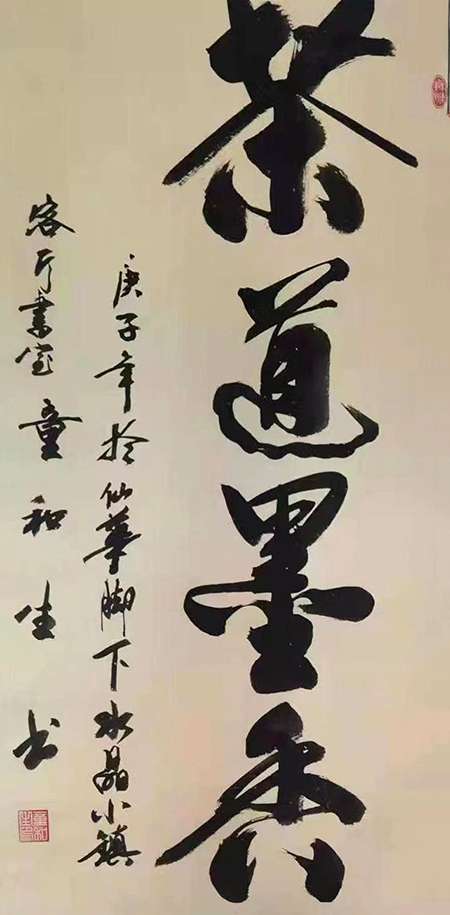 茶道墨香
庚子年於仙華脚下水晶小镇
客厅書室童和生书